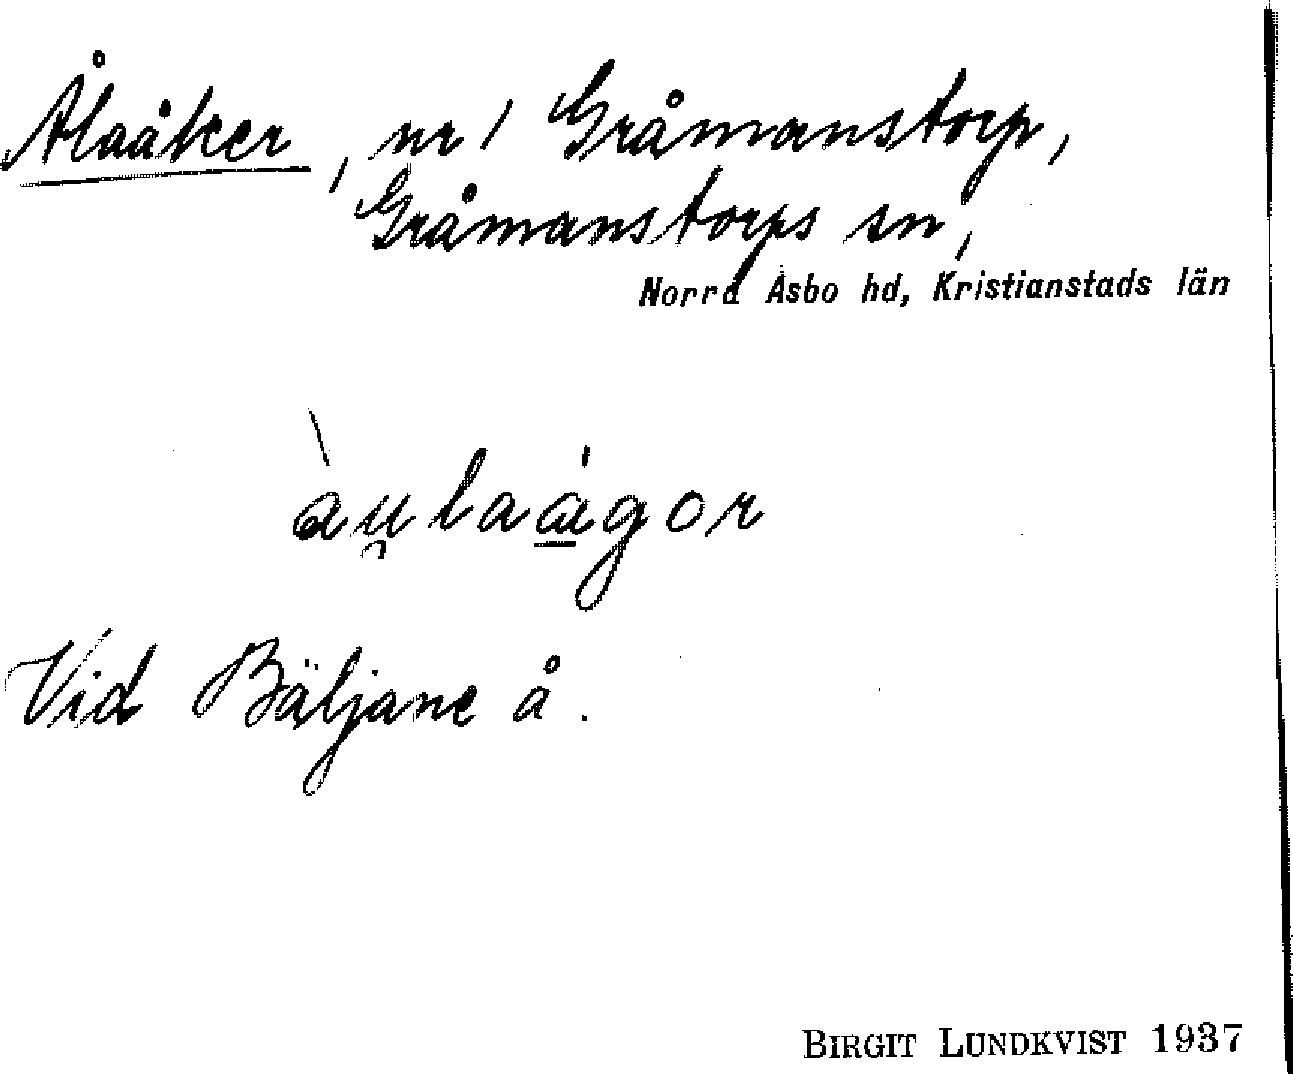 Ålaåker, nr 1 Gråmanstorp,
Gråmanstorps sn,
Norra Åsbo hd, Kristianstads län
àu̯laȧ̲gor
Vid Bäljane å.
BIRGIT LUNDKVIST 1937